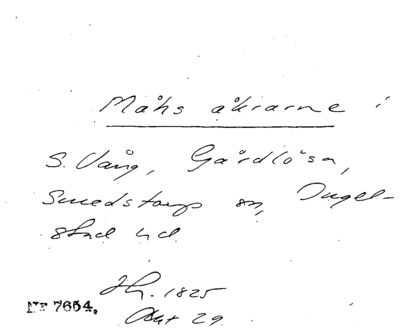 Måhs åkrarne i
S. Vång, Gårdlösa,
Smedstorps sn, Ingel-
stad hd
Hh. 1825
Akt 29
Nr 7654.